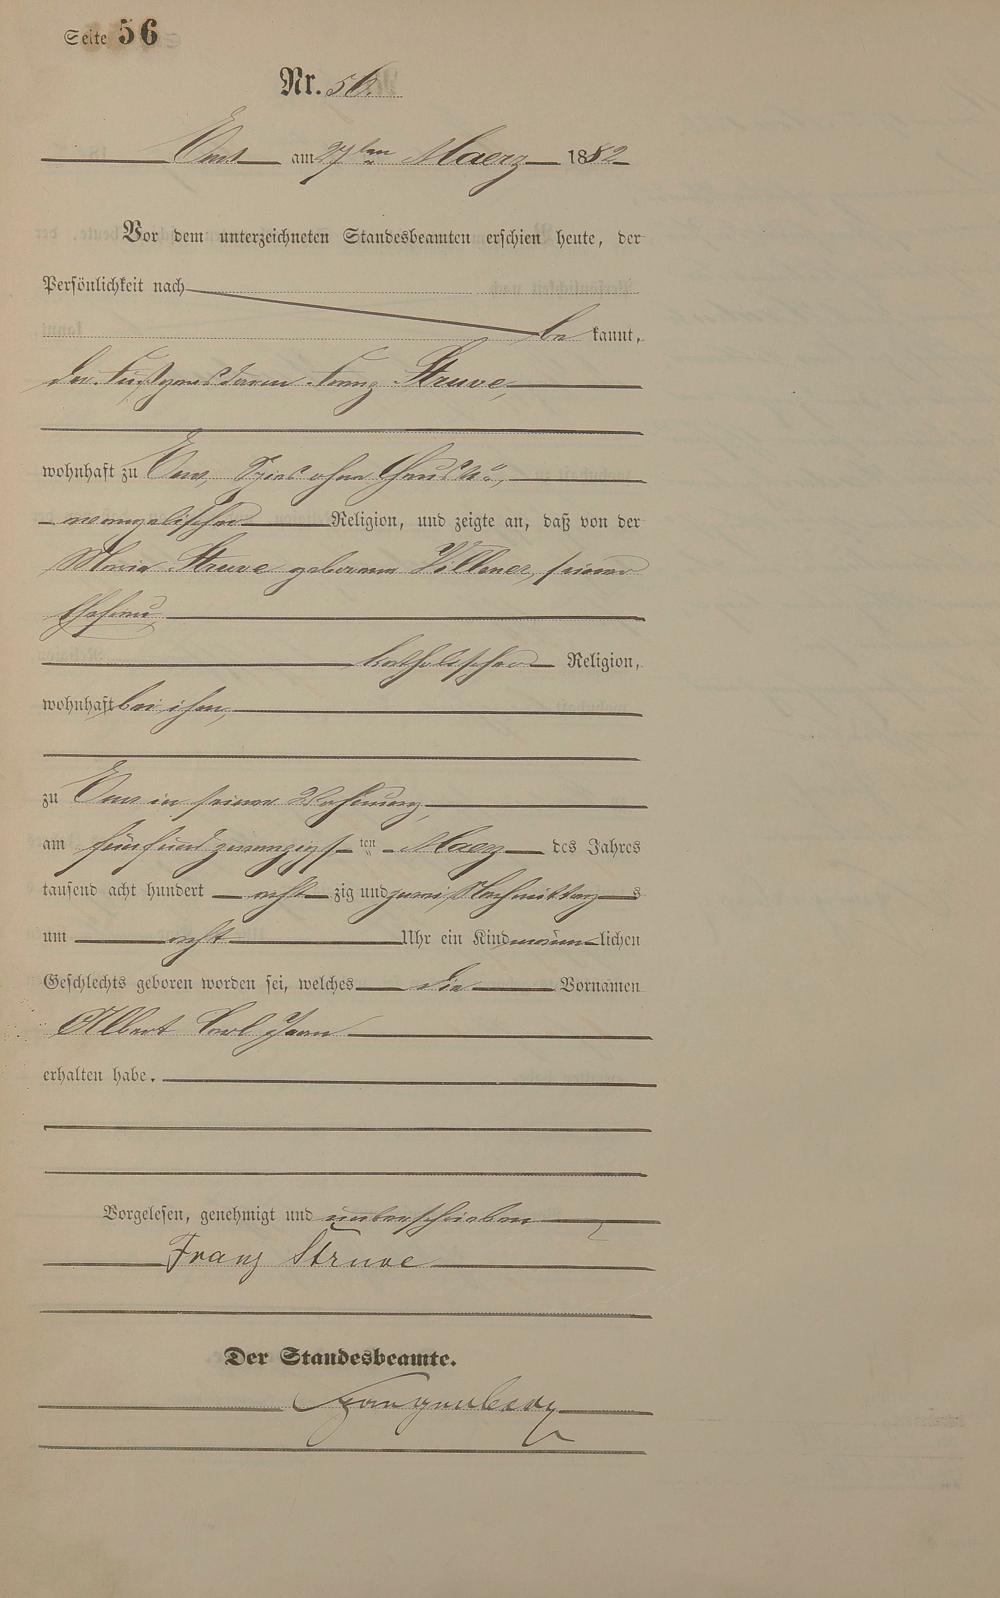 Seite 56
Nr. 56.
Ems am 27ten Maerz 1882
Vor dem unterzeichneten Standesbeamten erschien heute, der
Persönlichkeit nach
be kannt,
der Fußgendarm Franz Struve,
wohnhaft zu Ems,
evangelischer Religion, und zeigte an, daß von der
Maria Struve geborenen Villmer, seiner
Ehefrau,
katholischer Religion,
wohnhaft bei ihm,
zu Ems in seiner Wohnung,
am fünfundzwanzigsten Maerz des Jahres
tausend acht hundert acht zig und zwei Nachmittags
um acht Uhr ein Kind männlichen
Geschlechts geboren worden sei, welches die Vornamen
Albert Carl
erhalten habe.
Vorgelesen, genehmigt und unterschrieben
Franz Struve
Der Standesbeamte.